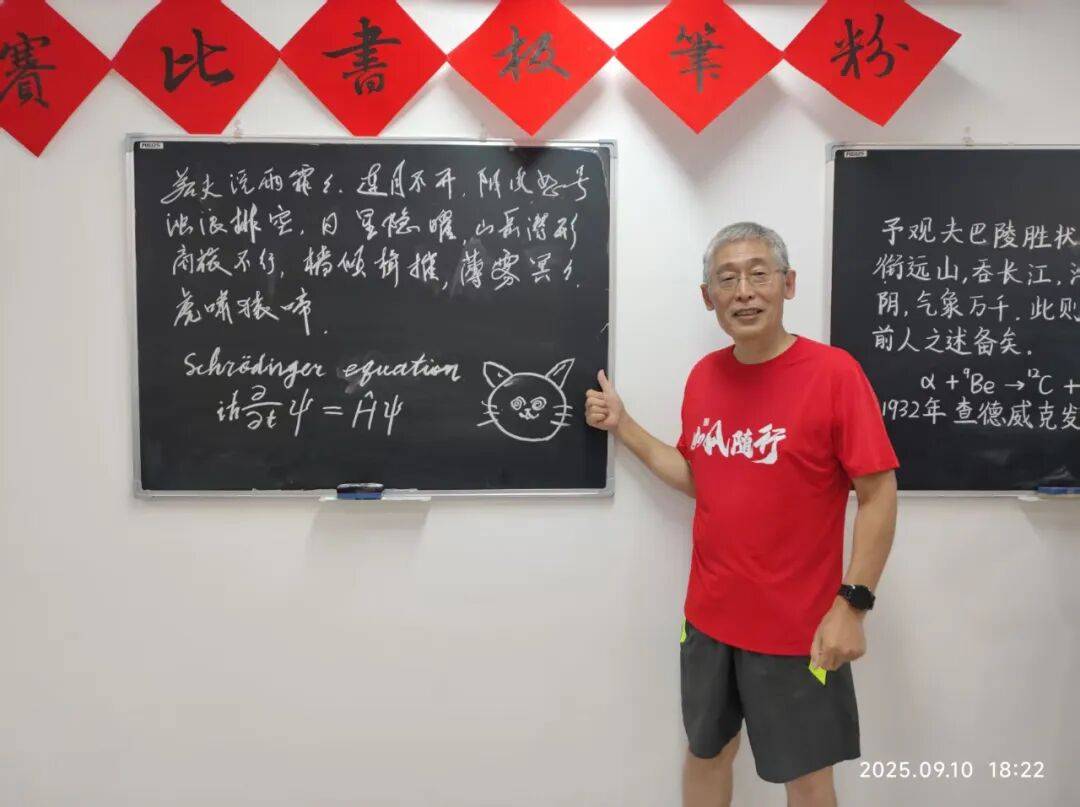 粉筆板書比賽
若夫淫雨霏々,连月不开,阴风怒号
浊浪排空,日星隐曜,山岳潜形
商旅不行,樯倾楫摧,薄雾冥々.
虎啸猿啼.
Schrödinger equation
iℏ∂/∂t ψ = Ĥψ
予观夫巴陵胜状
衔远山,吞长江,
阴,气象万千.此则
前人之述备矣.
α + ⁹Be → ¹²C +
1932年 查德威克发
风随行
2025.09.10 18:22